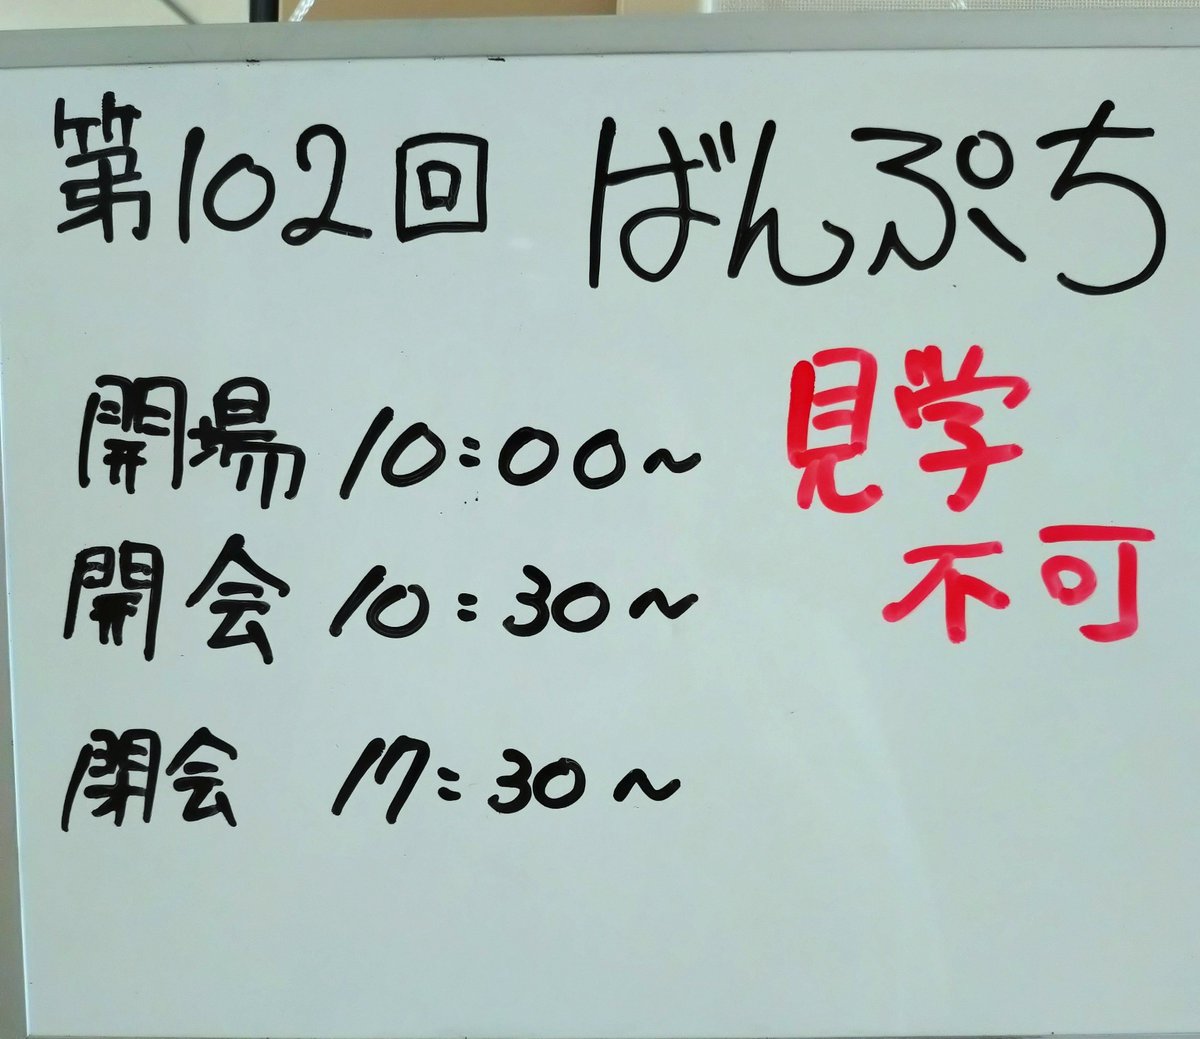 第102回 ばんぷち
開場 10:00~
開会 10:30~
閉会 17:30~
見学
不可